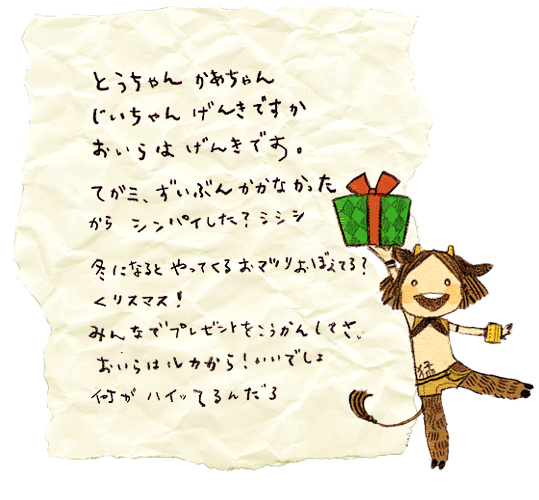 とうちゃん かあちゃん
じいちゃん げんきですか
おいらは げんきです。
てがミ、ずいぶん かかなかった
から シンパイした？シシシ
冬になると やってくる おマツリおぼえてる？
くリスマス！
みんなでプレゼントをこうかんしてさ、
おいらはルカから！いいでしょ
何が ハイッてるんだろ
猛